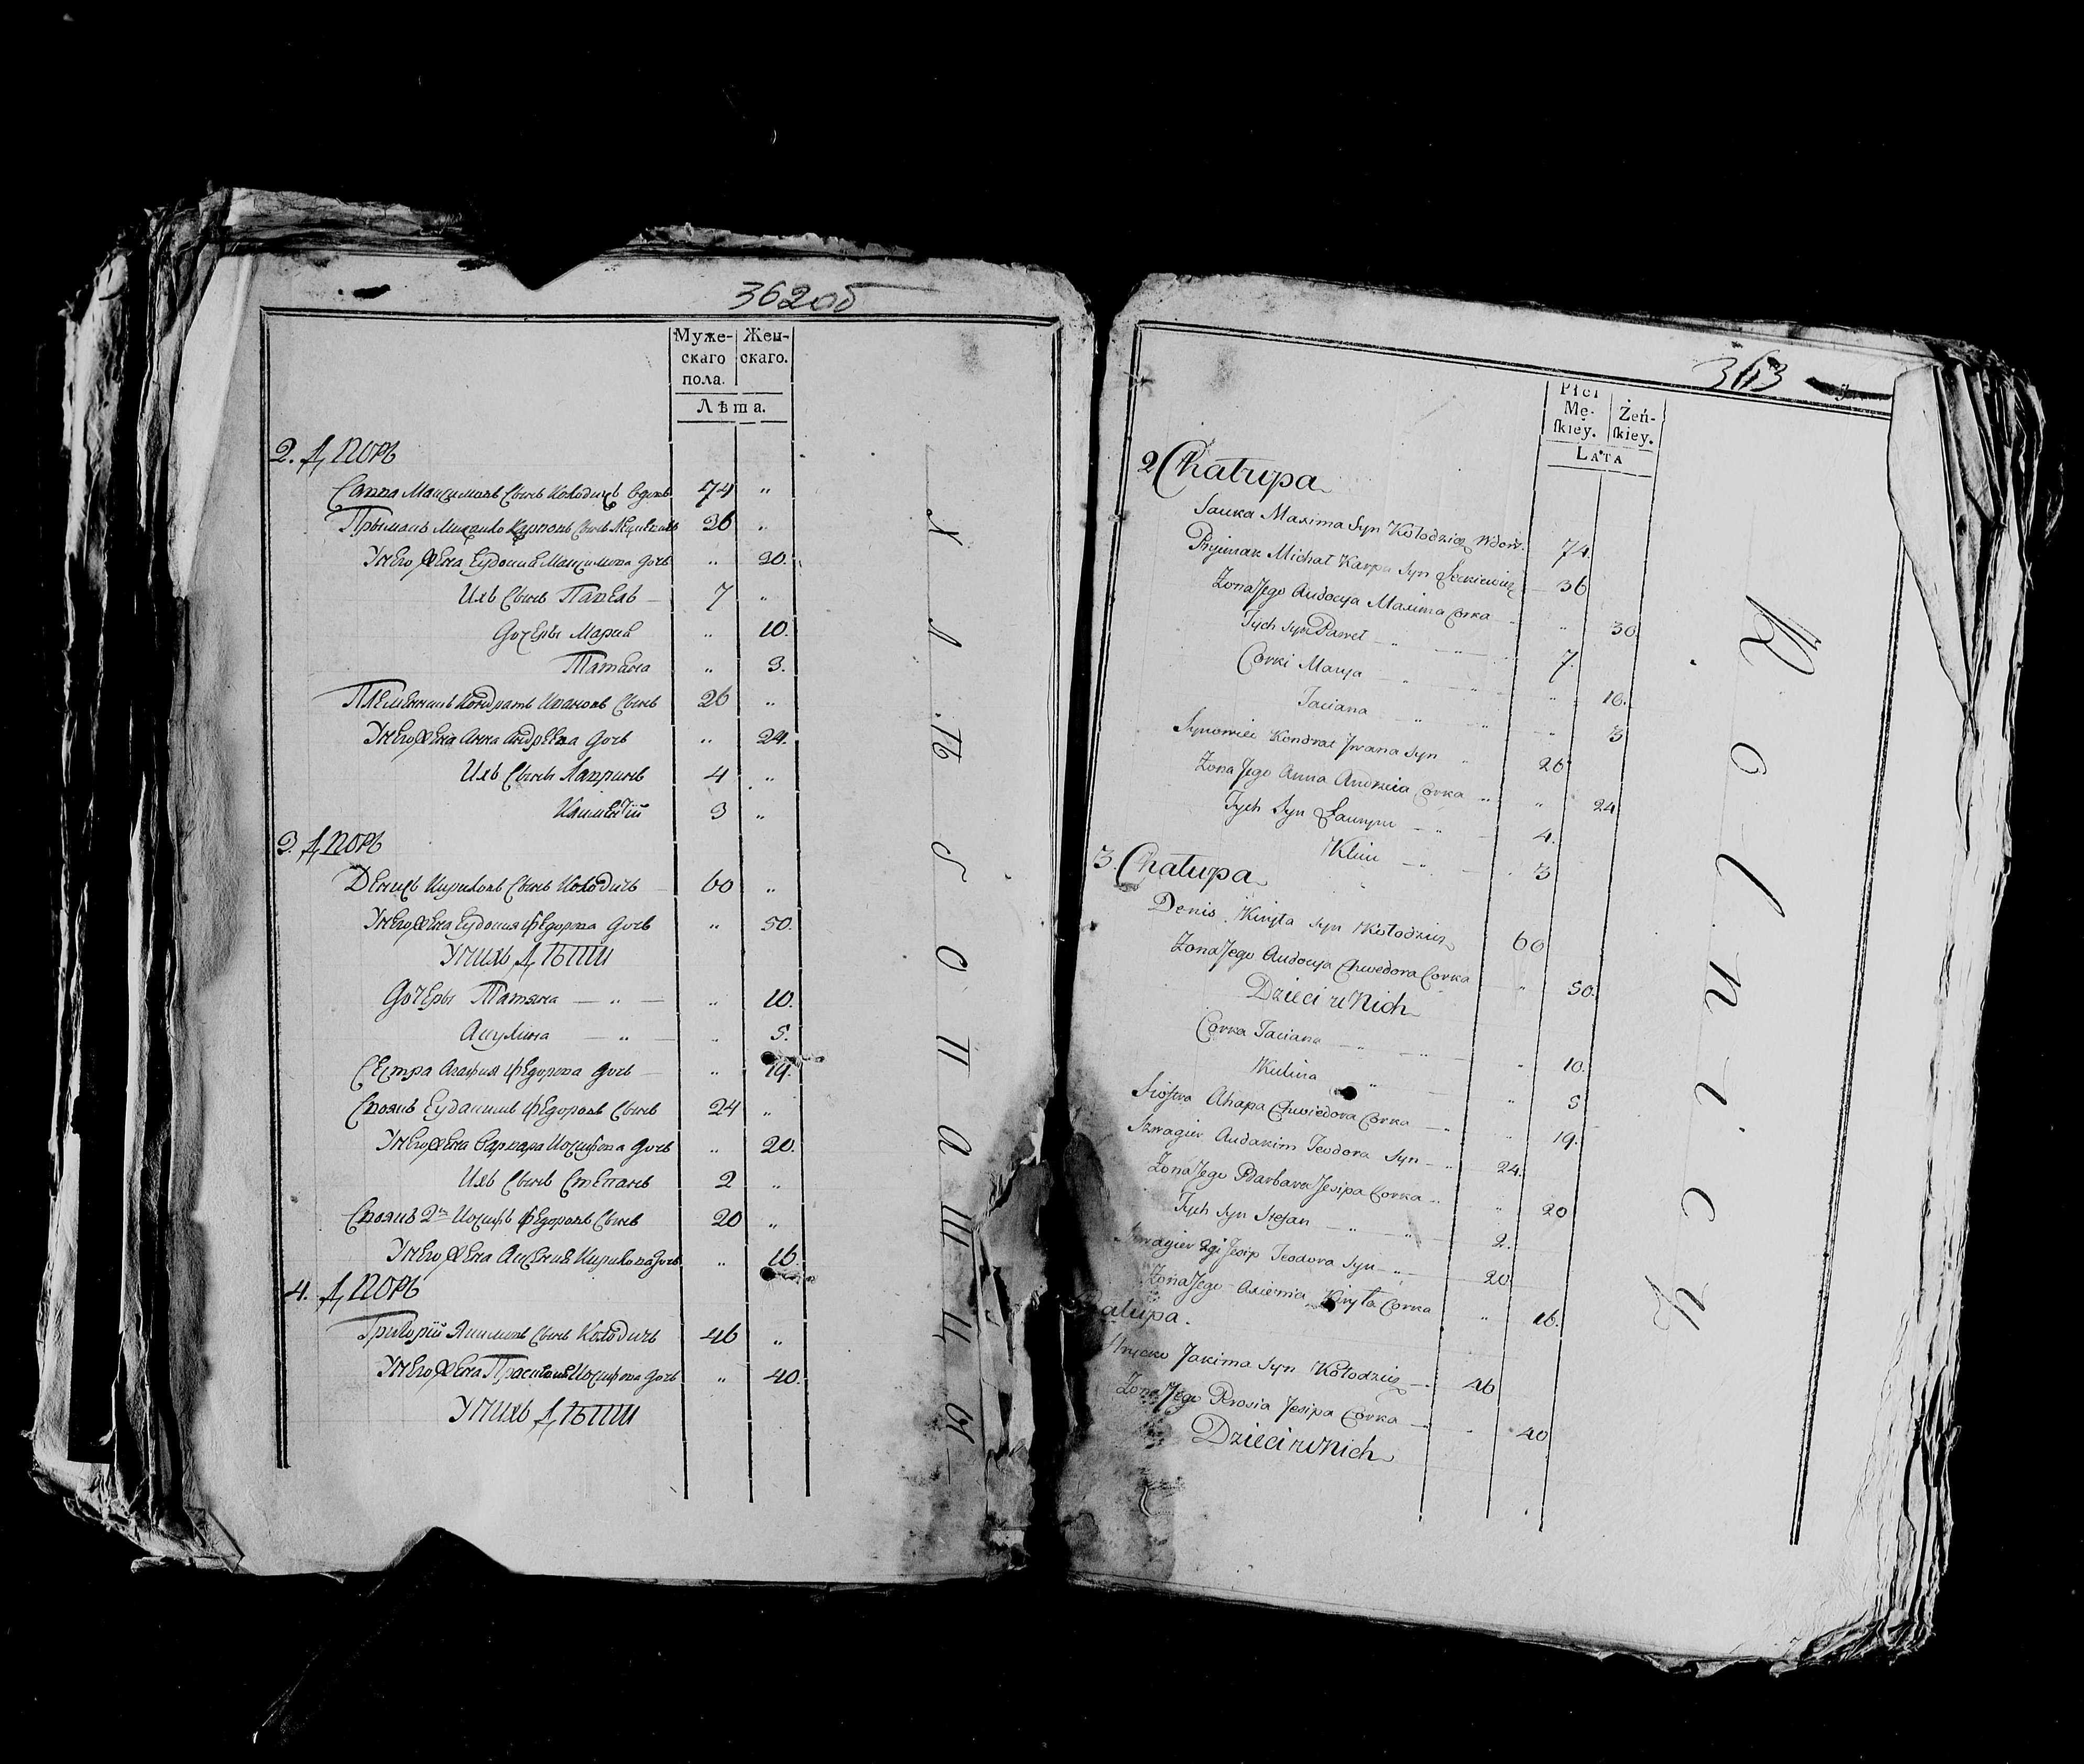 362об
Муже- Жен-
скаго скаго.
пола.
Лѣта.
2. Дворъ
Савва Максимовъ Сынъ Колодичъ вдовъ 74 "
Прымакъ Михайло Карповъ Сынъ 36 "
Унего Жена Еудокия Максимова дочь " 30.
Ихъ Сынъ Павелъ — 7 "
Дочеры Мария " 10.
Татьяна " 3.
Племянникъ Кондратъ Ивановъ Сынъ 26 "
Унего Жена Анна Андреева дочь " 24.
Ихъ Сыны Лавринъ 4 "
Климентій 3 "
3. Дворъ
Денисъ Кириловъ Сынъ Колодичъ 60 "
Унего Жена Еудокия Федорова дочь " 50.
Унихъ Дѣти
Дочеры Татяна — " — " 10.
Акулина — " — " 5.
Сестра Агафия Федорова дочь — " 19.
Своякъ Еудакимъ Федоровъ Сынъ 24 "
Унего Жена Варвара Иосифова дочь " 20.
Ихъ Сынъ Степанъ 2 "
Своякъ 2й Иосифъ Федоровъ Сынъ 20 "
Унего Жена Аксения Кирилова дочь " 16.
4. Дворъ
Григорій Якимовъ Сынъ Колодичъ 46 "
Унего Жена Прасковия Иосифова дочь " 40.
Унихъ Дѣти
Хлѣбопашцы —
363
Płci
Mę- Żeń-
ſkiey. ſkiey.
LATA
2 Chałupa
Sauka Maxima Syn Kołodzicz Wdow. 74.
Pryimak Michał Karpa Syn 36
Zona Jego Audocya Maxima Corka " " 30.
Tych Syn Paweł — " 7.
Corki Marya — " " 10.
Taciana — " " 3
Synowiec Kondrat Jwana Syn " 26
Zona Jego Anna Andrzeia Corka " " 24
Tych Syn Ławryn — " 4.
Klim — " 3
3. Chałupa
Denis Kiryła Syn Kołodzicz 60
Zona Jego Audocya Chwedora Corka " 50.
Dzieci u Nich
Corka Taciana — " " 10.
Kulina " " 5
Siostra Ahapa Chwiedora Corka — " " 19.
Szwagier Audakim Teodora Syn — " 24.
Zona Jego Barbara Jesipa Corka " " 20
Tych Syn Stefan — " " 2.
Szwagier 2gi Jesip Teodora Syn — " 20
Zona Jego Axienia Kiryła Corka " 16.
Chałupa.
Hrycko Jakima Syn Kołodzicz — 46
Zona Jego Prosia Jesipa Corka — " 40
Dzieci u Nich
Rolnicy